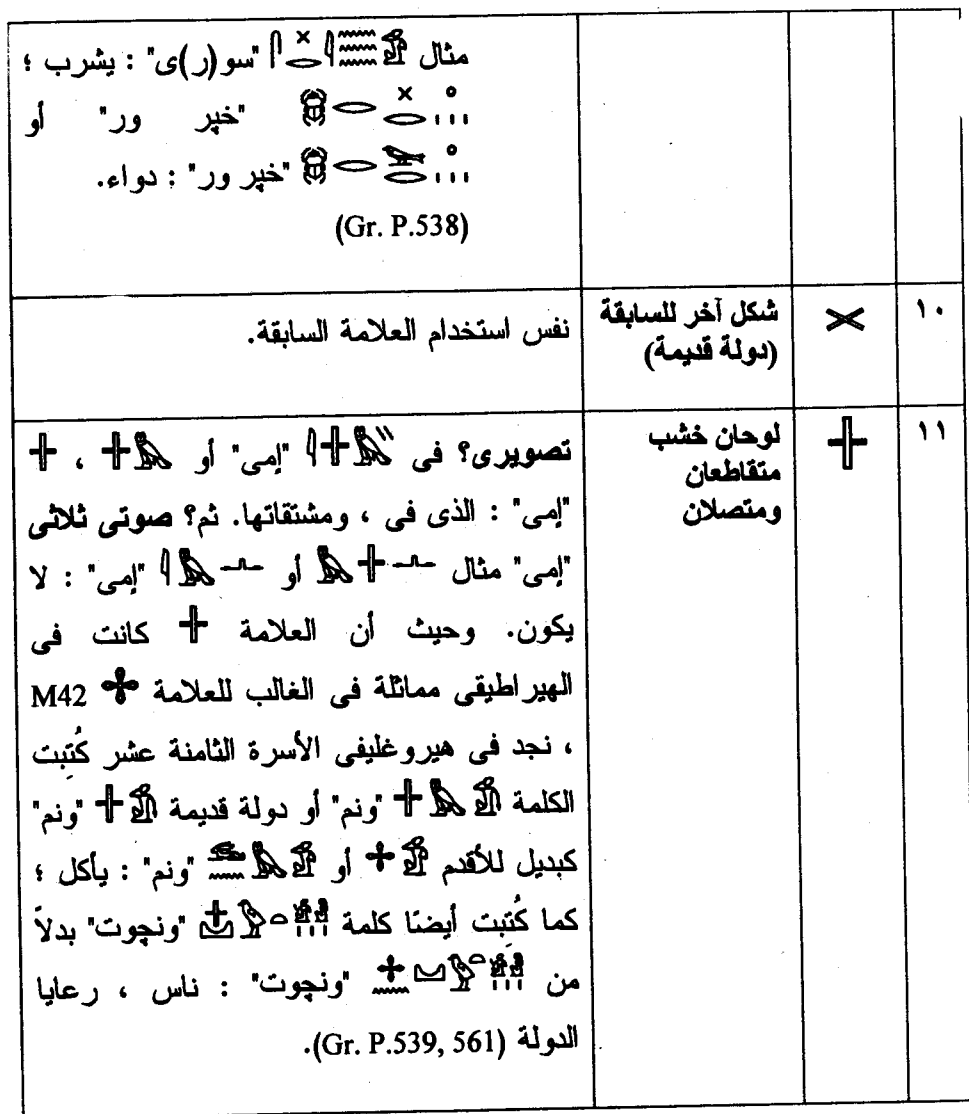 مثال 𓋴𓏴𓂋𓇋𓈗𓀁 "سو(ر)ى" : يشرب ؛
𓆣𓂋𓏴𓂋𓈒𓏥 "خپر ور" أو
𓆣𓂋𓅨𓂋𓈒𓏥 "خپر ور" : دواء.
(Gr. P.538)
١٠ 𓏵 شكل آخر للسابقة نفس استخدام العلامة السابقة.
(دولة قديمة)
١١ 𓏶 لوحان خشب
متقاطعان
ومتصلان
تصويرى؟ فى 𓇋𓏶𓅓𓏮 "إمى" أو 𓏶𓅓 ، 𓏶
"إمى" : الذى فى ، ومشتقاتها. ثم؟ صوتى ثلاثى
"إمى" مثال 𓂜𓏶𓅓 أو 𓂜𓇋𓅓 "إمى" : لا
يكون. وحيث أن العلامة 𓏶 كانت فى
الهيراطيقى مماثلة فى الغالب للعلامة 𓇬 M42
، نجد فى هيروغليفى الأسرة الثامنة عشر كُتِبت
الكلمة 𓏶𓅓𓀁 "ونم" أو دولة قديمة 𓏶𓀁 "ونم"
كبديل للأقدم 𓇬𓀁 أو 𓃹𓈖𓅓𓀁 "ونم" : يأكل ؛
كما كُتِبت أيضًا كلمة 𓏶𓎟𓅱𓏏𓀀𓁐𓏥 "ونچوت" بدلاً
من 𓇬𓈖𓎟𓅱𓏏𓀀𓁐𓏥 "ونچوت" : ناس ، رعايا
الدولة (Gr. P.539, 561).